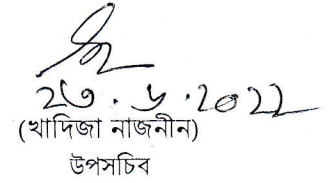 ২৩.৬.২০২২
(খাদিজা নাজনীন)
উপসচিব